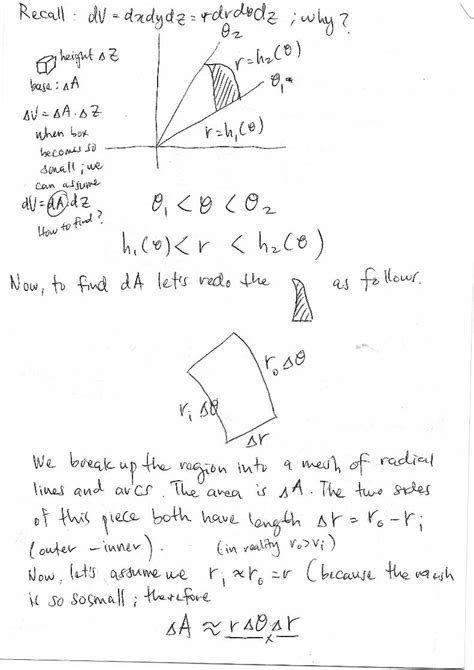 Recall : dV = dxdydz = rdrdθdz ; why?
θ₂
height ΔZ
r = h₂(θ)
θ₁
base : ΔA
ΔV = ΔA . ΔZ
r = h₁(θ)
when box
becomes so
small ; we
can assume
dV = dA dz
How to find?
θ₁ < θ < θ₂
h₁(θ) < r < h₂(θ)
Now, to find dA let's redo the as follows.
r₀ Δθ
rᵢ Δθ
Δr
We break up the region into a mesh of radial
lines and arcs. The area is ΔA. The two sides
of this piece both have length Δr = r₀ - rᵢ
(outer - inner). (in reality r₀ > rᵢ)
Now, let's assume we rᵢ ≈ r₀ = r (because the mesh
is so so small ; therefore
ΔA ≈ r Δθ x Δr